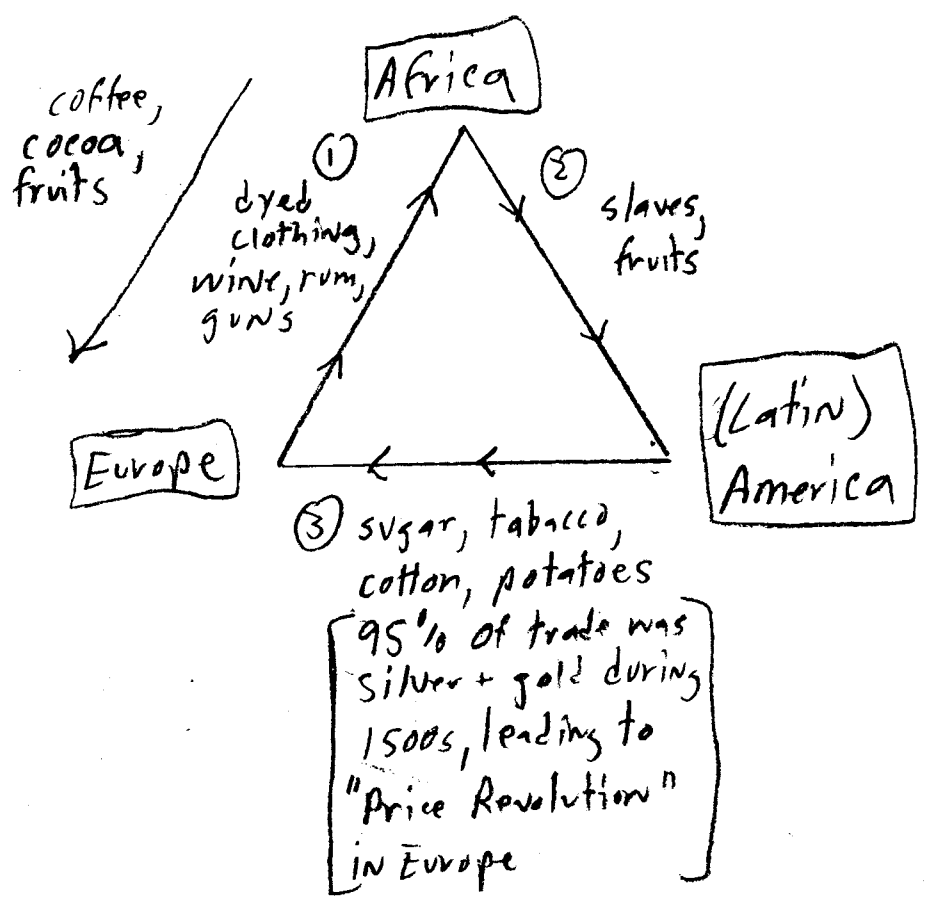 Africa
coffee,
cocoa,
fruits
①
dyed
clothing,
wine, rum,
guns
②
slaves,
fruits
Europe
(Latin)
America
③ sugar, tabacco,
cotton, potatoes
95% of trade was
silver + gold during
1500s, leading to
"Price Revolution"
in Europe